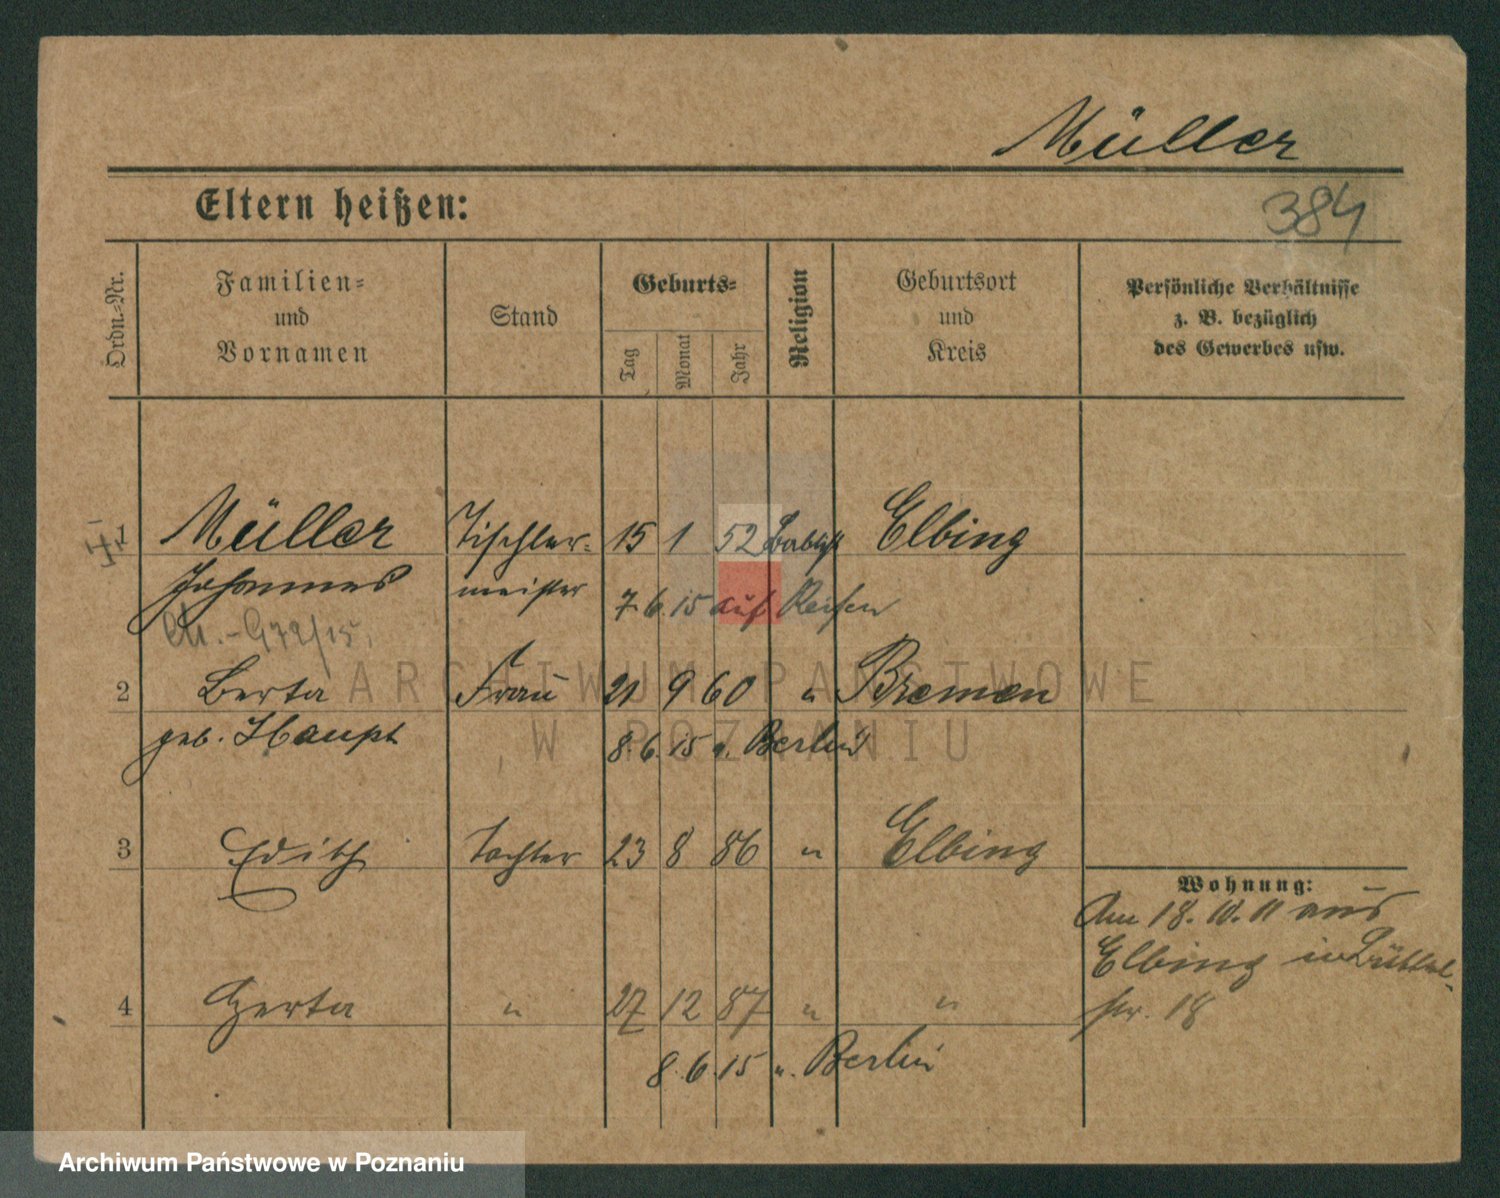 Müller
Eltern heißen:
384
Ordn.-Nr.
Familien-
und
Vornamen
Stand
Geburts-
Tag
Monat
Jahr
Religion
Geburtsort
und
Kreis
Persönliche Verhältnisse
z. B. bezüglich
des Gewerbes usw.
1 Müller Tischler- 15 1 52 Elbing
Johannes meister 7.6.15 auf Reisen
472/15.
ARCHIWUM PAŃSTWOWE
2 Berta Frau 21 9 60 " Bremen
W POZNANIU
geb. Haupt 8.6.15 n. Berlin
3 Edith Tochter 23 8 86 " Elbing
Wohnung:
Am 18.10.11 aus
Elbing in
4 Herta " 27 12 87 " "
str. 18
8.6.15 n. Berlin
Archiwum Państwowe w Poznaniu